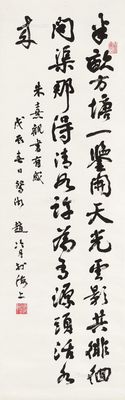 半畝方塘一鑒開天光雲影共徘徊
問渠那得清如許為有源頭活水
來
朱熹觀書有感
戊辰春日鴛湖趙冷月於海上